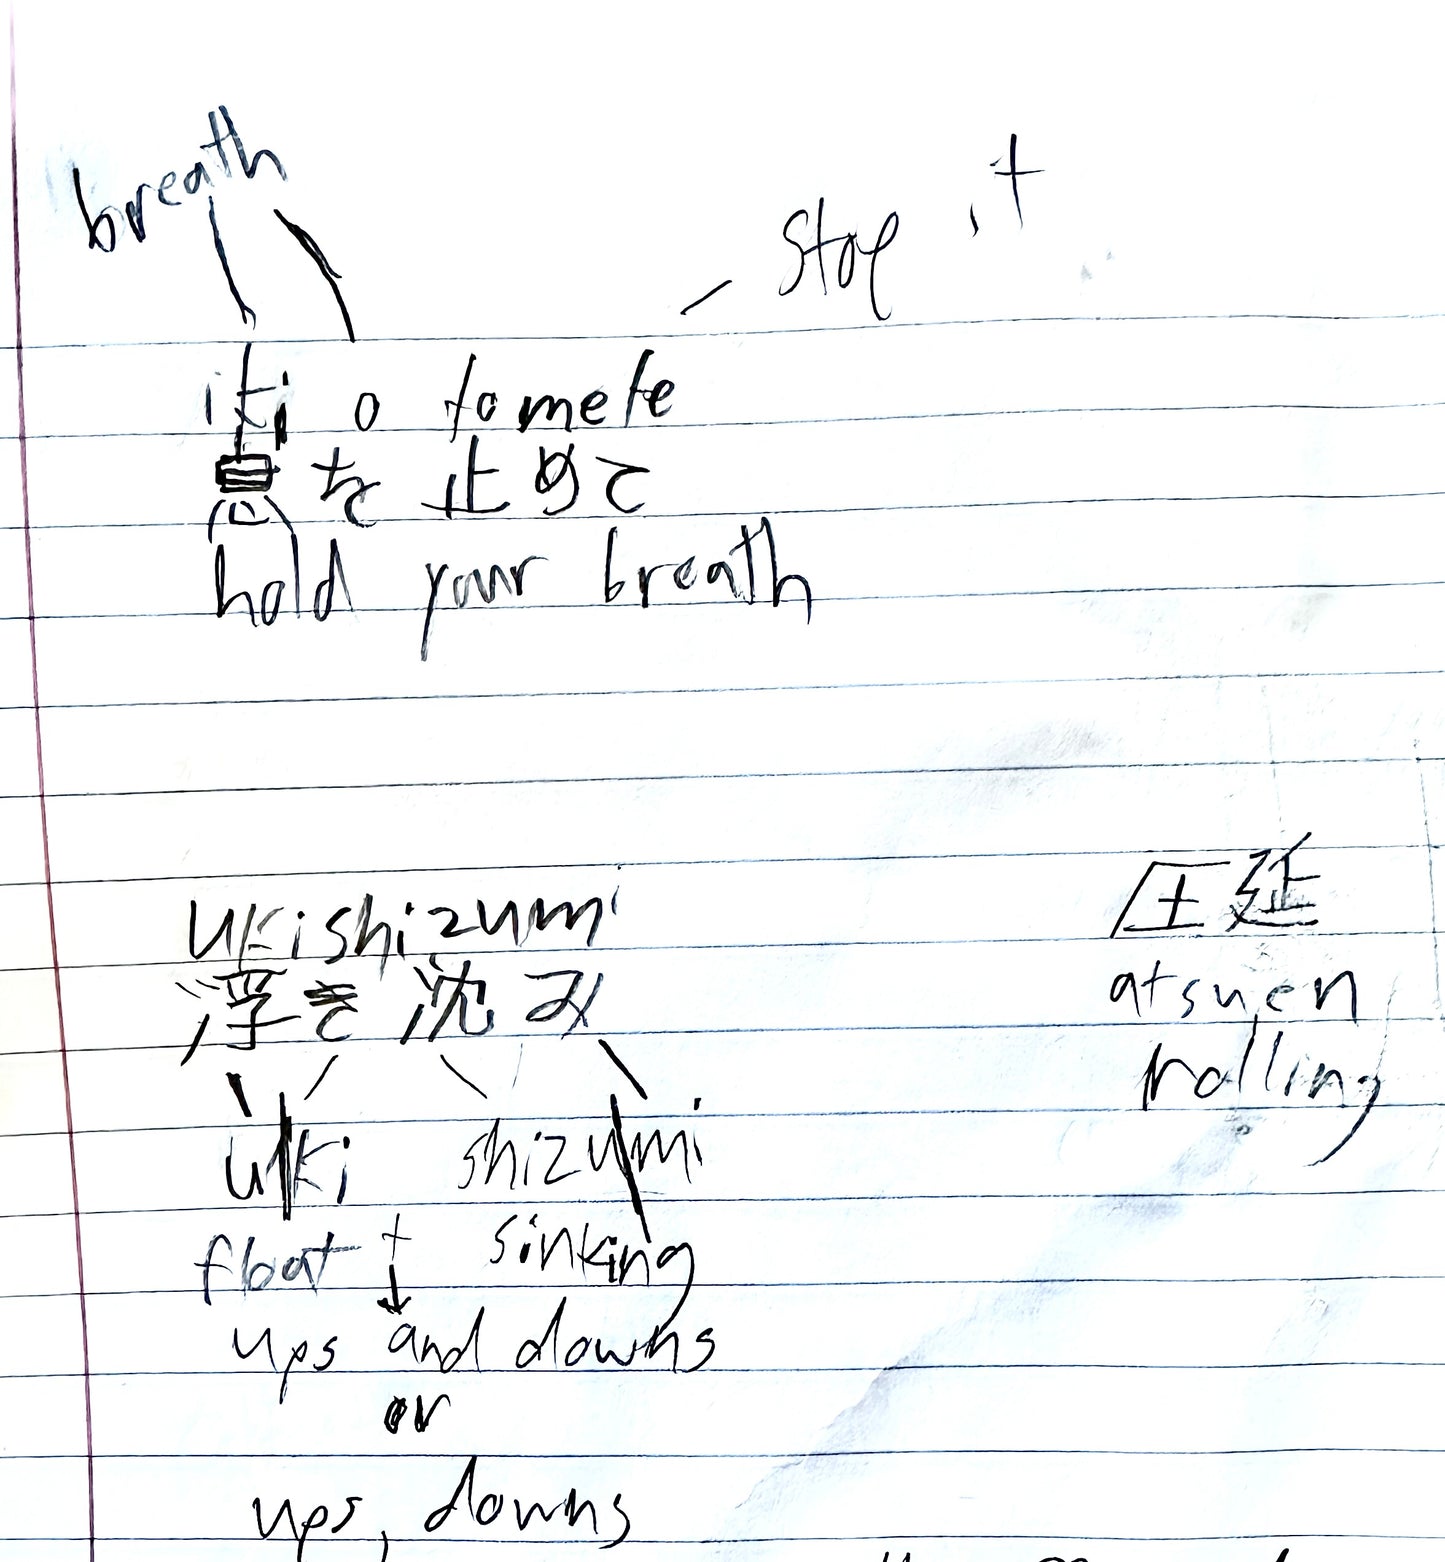 breath
stop it
iki o tomete
息を止めて
hold your breath
ukishizumi
浮き沈み
uki shizumi
float + sinking
ups and downs
or
ups, downs
圧延
atsuen
rolling